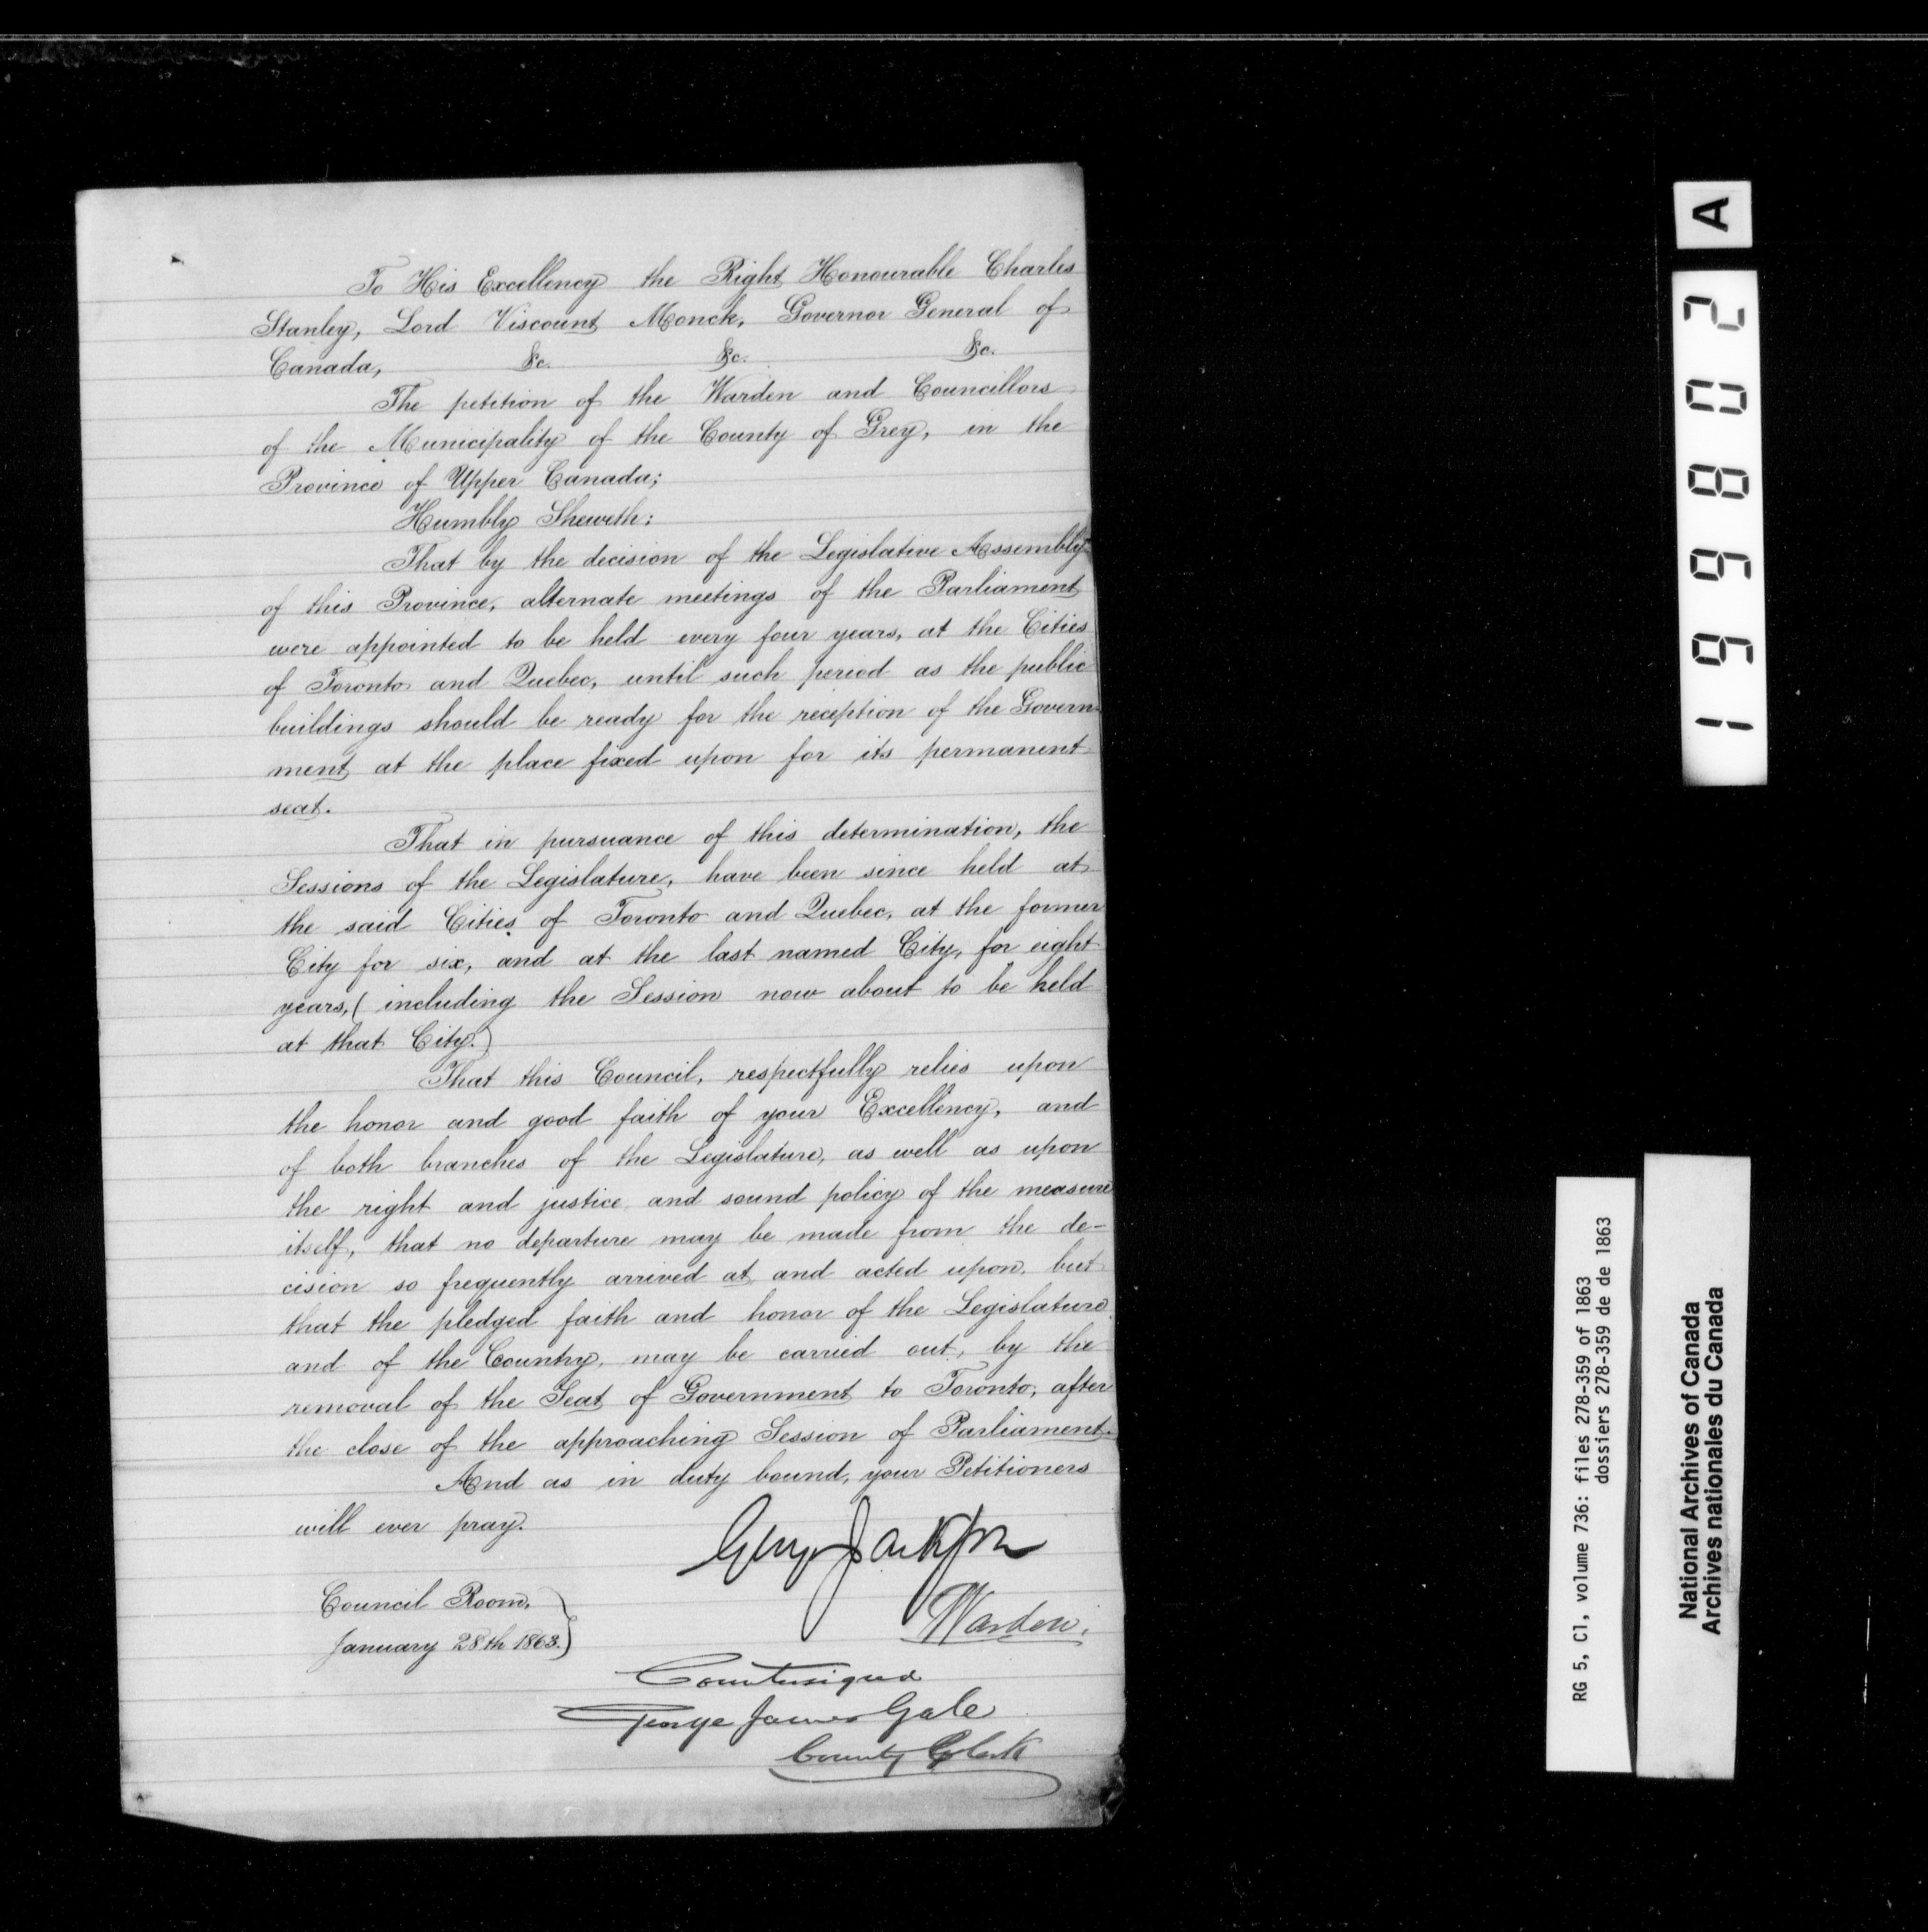 To His Excellency the Right Honourable Charles
Stanley, Lord Viscount Monck, Governor General of
Canada, &c. &c. &c.
The petition of the Warden and Councillors
of the Municipality of the County of Grey, in the
Province of Upper Canada;
Humbly Sheweth:
That by the decision of the Legislative Assembly
of this Province, alternate meetings of the Parliament
were appointed to be held every four years, at the Cities
of Toronto and Quebec, until such period as the public
buildings should be ready for the reception of the Govern-
ment at the place fixed upon for its permanent
seat.
That in pursuance of this determination, the
Sessions of the Legislature, have been since held at
the said Cities of Toronto and Quebec, at the former
City for six, and at the last named City, for eight
years, (including the Session now about to be held
at that City.)
That this Council, respectfully relies upon
the honor and good faith of your Excellency, and
of both branches of the Legislature, as well as upon
the right and justice and sound policy of the measure
itself, that no departure may be made from the de-
cision so frequently arrived at and acted upon, but
that the pledged faith and honor of the Legislature
and of the Country, may be carried out, by the
removal of the Seat of Government to Toronto, after
the close of the approaching Session of Parliament.
And as in duty bound, your Petitioners
will ever pray.
George Jackson
Warden.
Council Room,
January 28th 1863.
Countersigned
George James Gale
County Clerk
199802 A
RG 5, C1, volume 736: files 278-359 of 1863
dossiers 278-359 de de 1863
National Archives of Canada
Archives nationales du Canada